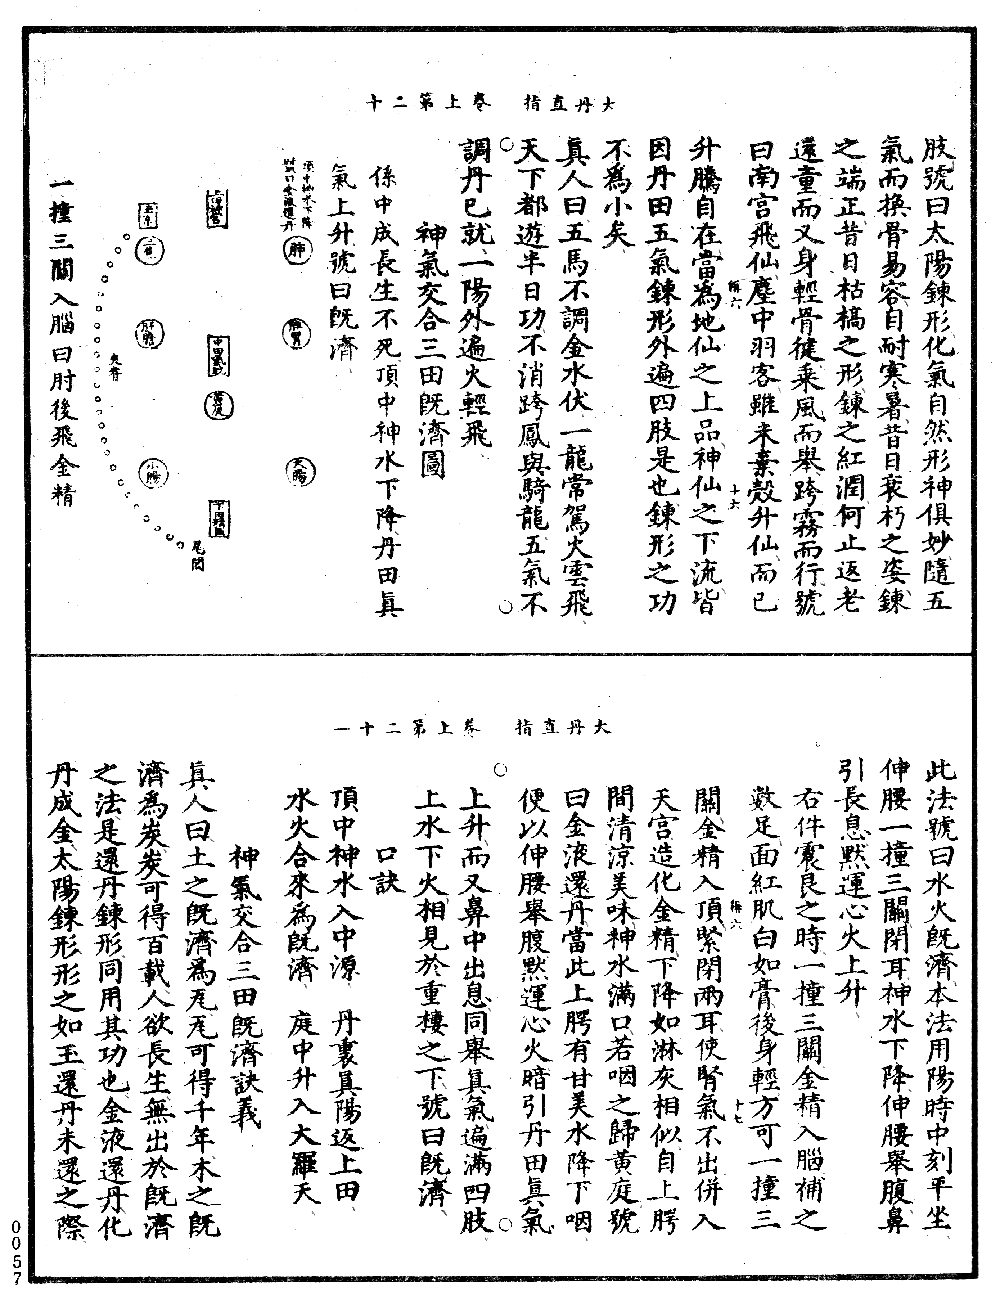 大丹直指　卷上第二十
肢號曰太陽鍊形化氣自然形神俱妙隨五
氣而換骨易容自耐寒暑昔日衰朽之姿鍊
之端正昔日枯槁之形鍊之紅潤何止返老
還童而又身輕骨健乘風而舉跨霧而行號
曰南宮飛仙塵中羽客雖未棄殼升仙而已
升騰自在當為地仙之上品神仙之下流皆
因丹田五氣鍊形外遍四肢是也鍊形之功
不為小矣
真人曰五馬不調金水伏一龍常駕火雲飛
天下都遊半日功不消跨鳳與騎龍五氣不
調丹已就一陽外遍火輕飛
神氣交合三田既濟圖
係中成長生不死頂中神水下降丹田真
氣上升號曰既濟
肺
夾脊
尾閭
一撞三關入腦曰肘後飛金精
大丹直指　卷上第二十一
此法號曰水火既濟本法用陽時中刻平坐
伸腰一撞三關閉耳神水下降伸腰舉腹鼻
引長息默運心火上升
右件震艮之時一撞三關金精入腦補之
數足面紅肌白如膏後身輕方可一撞三
關金精入頂緊閉兩耳使腎氣不出併入
天宮造化金精下降如淋灰相似自上腭
間清涼美味神水滿口若咽之歸黃庭號
曰金液還丹當此上腭有甘美水降下咽
便以伸腰舉腹默運心火暗引丹田真氣
上升而又鼻中出息同舉真氣遍滿四肢
上水下火相見於重樓之下號曰既濟
口訣
頂中神水入中源　丹裏真陽返上田
水火合來為既濟　庭中升入大羅天
神氣交合三田既濟訣義
真人曰土之既濟為瓦瓦可得千年木之既
濟為炭炭可得百載人欲長生無出於既濟
之法是還丹鍊形同用其功也金液還丹化
丹成金太陽鍊形形之如玉還丹未還之際
0057